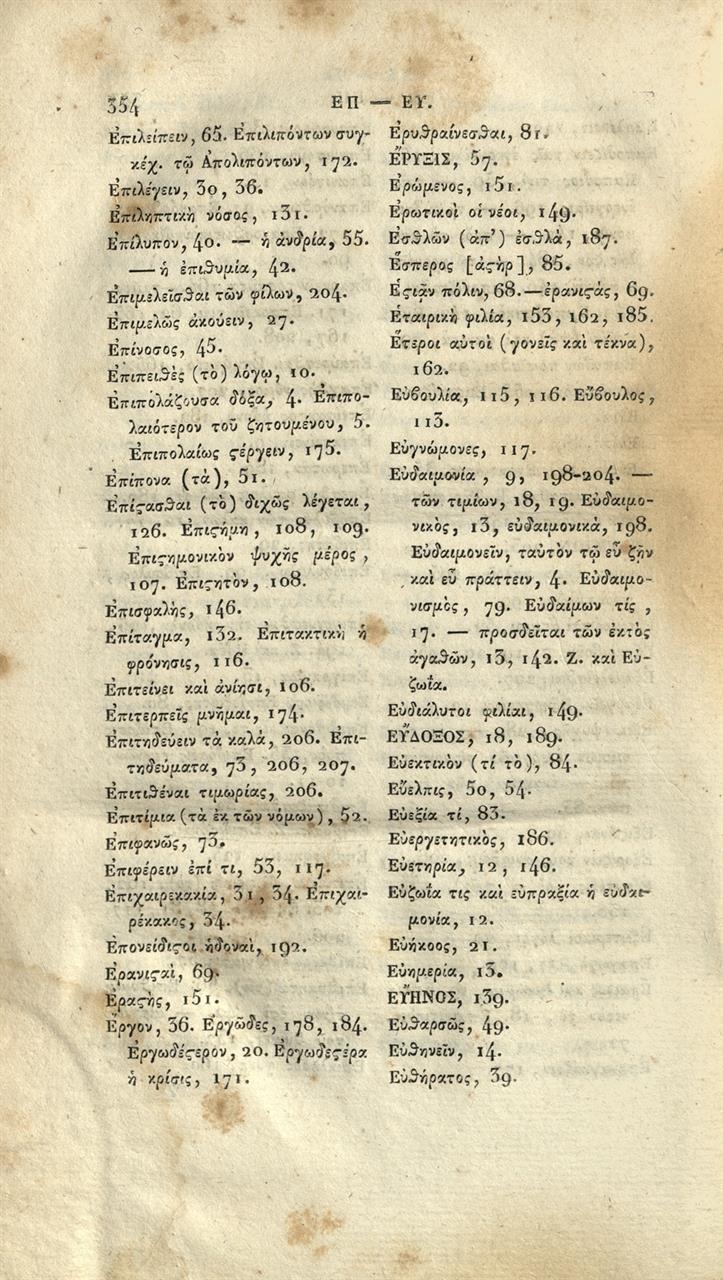 354 ΕΠ — ΕΥ.
Ἐπιλείπειν, 65. Ἐπιλιπόντων συγ-
κέχ. τῷ Ἀπολιπόντων, 172.
Ἐπιλέγειν, 30, 36.
Ἐπιληπτικὴ νόσος, 131.
Ἐπίλυπον, 40. — ἡ ἀνδρία, 55.
— ἡ ἐπιθυμία, 42.
Ἐπιμελεῖσθαι τῶν φίλων, 204.
Ἐπιμελῶς ἀκούειν, 27.
Ἐπίνοσος, 45.
Ἐπιπειθὲς (τὸ) λόγῳ, 10.
Ἐπιπολάζουσα δόξα, 4. Ἐπιπο-
λαιότερον τοῦ ζητουμένου, 5.
Ἐπιπολαίως ϛέργειν, 175.
Ἐπίπονα (τὰ), 51.
Ἐπίϛασθαι (τὸ) διχῶς λέγεται,
126. Ἐπιϛήμη, 108, 109.
Ἐπιϛημονικὸν ψυχῆς μέρος,
107. Ἐπιϛητὸν, 108.
Ἐπισφαλὴς, 146.
Ἐπίταγμα, 132. Ἐπιτακτικὴ ἡ
φρόνησις, 116.
Ἐπιτείνει καὶ ἀνίησι, 106.
Ἐπιτερπεῖς μνῆμαι, 174.
Ἐπιτηδεύειν τὰ καλὰ, 206. Ἐπι-
τηδεύματα, 73, 206, 207.
Ἐπιτιθέναι τιμωρίας, 206.
Ἐπιτίμια (τὰ ἐκ τῶν νόμων), 52.
Ἐπιφανῶς, 73.
Ἐπιφέρειν ἐπί τι, 53, 117.
Ἐπιχαιρεκακία, 31, 34. Ἐπιχαι-
ρέκακος, 34.
Ἐπονείδιϛοι ἡδοναὶ, 192.
Ἐρανιϛαὶ, 69.
Ἐραϛὴς, 151.
Ἔργον, 36. Ἐργῶδες, 178, 184.
Ἐργωδέϛερον, 20. Ἐργωδεϛέρα
ἡ κρίσις, 171.
Ἐρυθραίνεσθαι, 81.
ἜΡΥΞΙΣ, 57.
Ἐρώμενος, 151.
Ἐρωτικοὶ οἱ νέοι, 149.
Ἐσθλῶν (ἀπ’) ἐσθλὰ, 187.
Ἕσπερος [ἀϛὴρ], 85.
Ἑϛιᾷν πόλιν, 68.—ἐρανιϛάς, 69.
Ἑταιρικὴ φιλία, 153, 162, 185.
Ἕτεροι αὐτοὶ (γονεῖς καὶ τέκνα),
162.
Εὐβουλία, 115, 116. Εὔβουλος,
113.
Εὐγνώμονες, 117.
Εὐδαιμονία, 9, 198-204. —
τῶν τιμίων, 18, 19. Εὐδαιμο-
νικὸς, 13, εὐδαιμονικὰ, 198.
Εὐδαιμονεῖν, ταὐτὸν τῷ εὖ ζῇν
καὶ εὖ πράττειν, 4. Εὐδαιμο-
νισμὸς, 79. Εὐδαίμων τίς,
17. — προσδεῖται τῶν ἐκτὸς
ἀγαθῶν, 13, 142. Ζ. καὶ Εὐ-
ζωΐα.
Εὐδιάλυτοι φιλίαι, 149.
ΕὝΔΟΞΟΣ, 18, 189.
Εὐεκτικὸν (τί τὸ), 84.
Εὔελπις, 50, 54.
Εὐεξία τί, 83.
Εὐεργετητικὸς, 186.
Εὐετηρία, 12, 146.
Εὐζωΐα τις καὶ εὐπραξία ἡ εὐδαι-
μονία, 12.
Εὐήκοος, 21.
Εὐημερία, 13.
ΕὝΗΝΟΣ, 139.
Εὐθαρσῶς, 49.
Εὐθηνεῖν, 14.
Εὐθήρατος, 39.